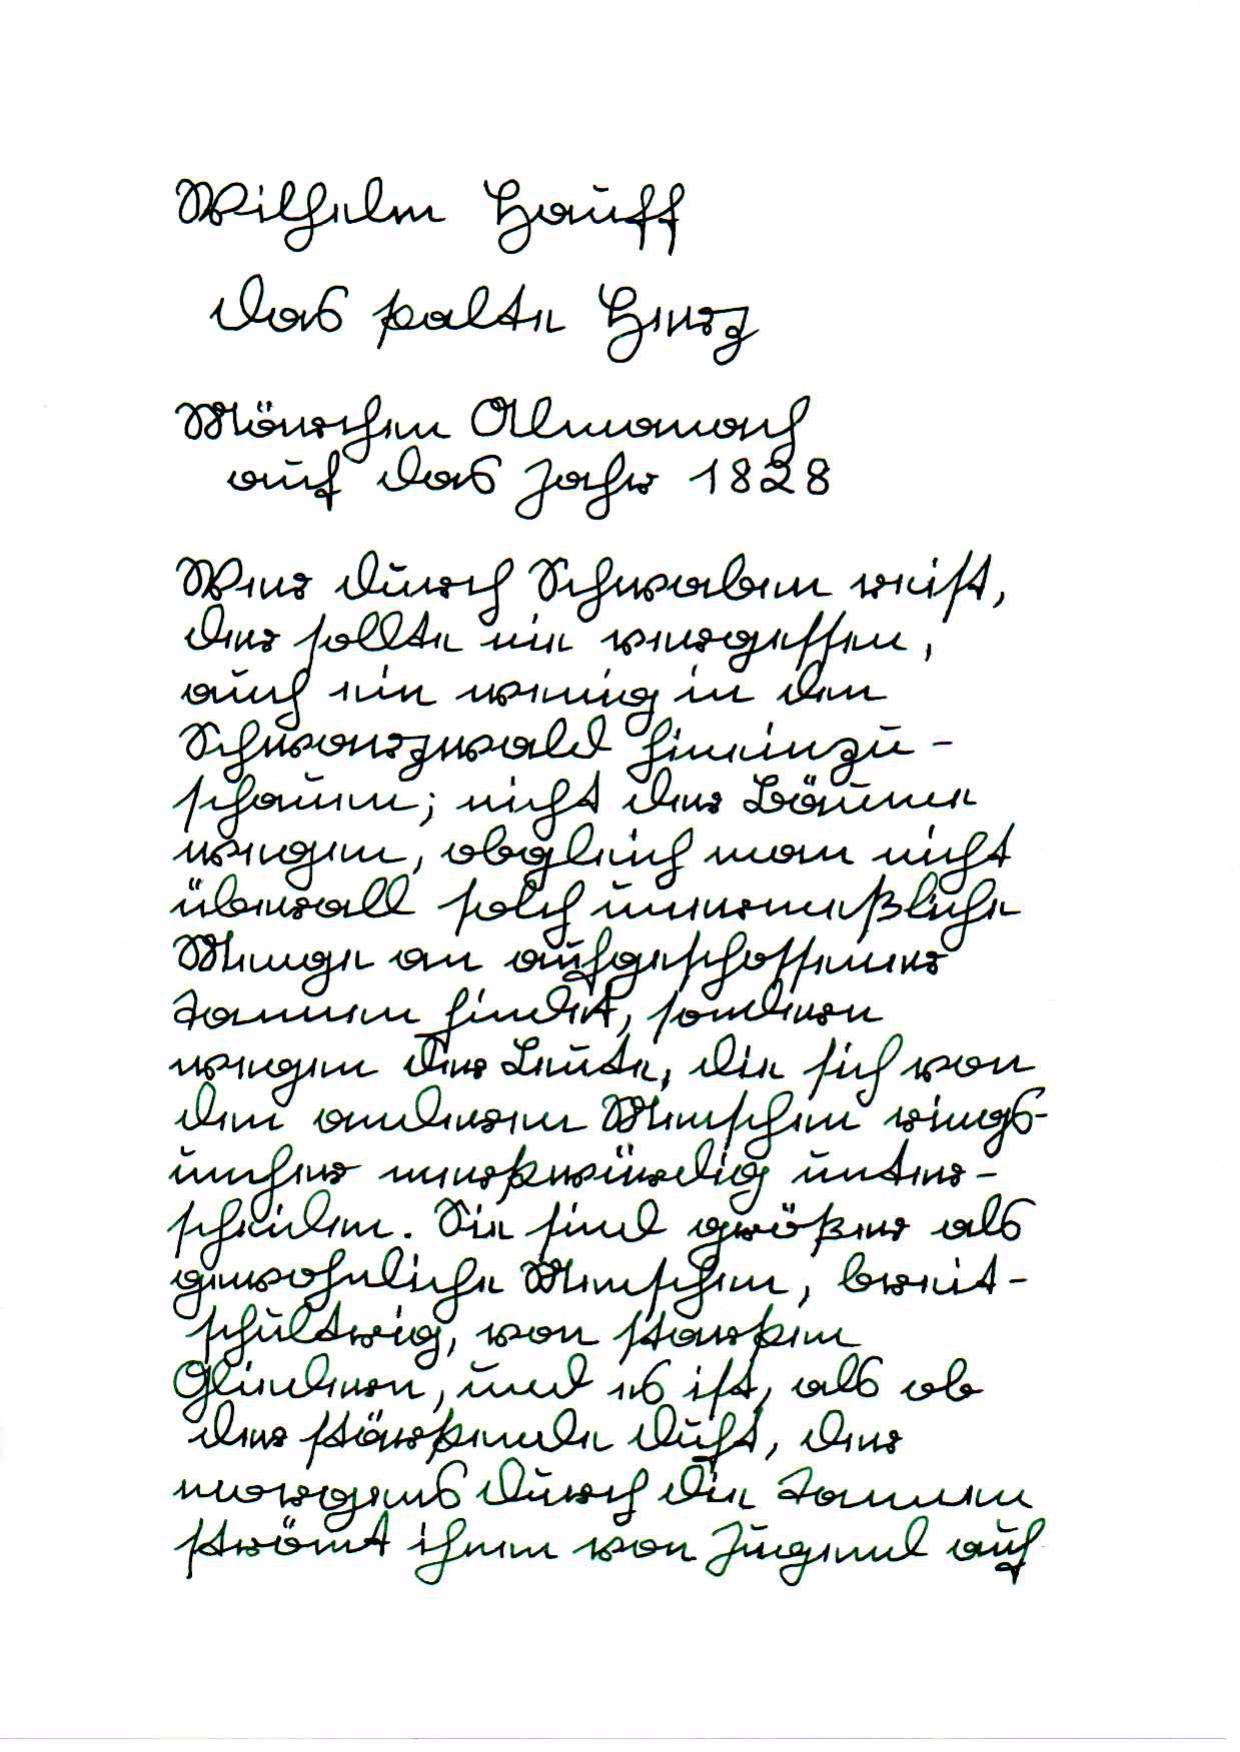 Wilhelm Hauff
Das kalte Herz
Märchen Almanach
auf das Jahr 1828
Wer durch Schwaben reist,
der sollte nie vergessen,
auch ein wenig in den
Schwarzwald hineinzu-
schauen; nicht der Bäume
wegen, obgleich man nicht
überall solch unermeßliche
Menge an aufgeschossener
Tannen findet, sondern
wegen der Leute, die sich von
den anderen Menschen rings-
umher merkwürdig unter-
scheiden. Sie sind größer als
gewohnliche Menschen, breit-
schultrig, von starken
Gliedern, und es ist, als ob
der stärkende Duft, der
morgens durch die Tannen
strömt ihnen von Jugend auf